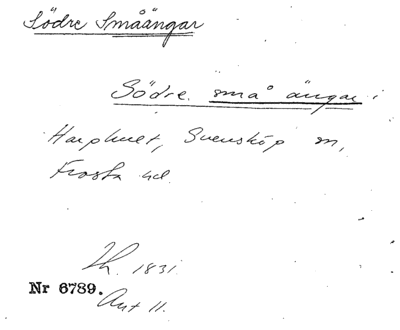 Södre Småängar
Södre små ängar i
Harphult, Svensköp sn,
Frosta hd.
Lh. 1831
Nr 6789.
Akt 11.